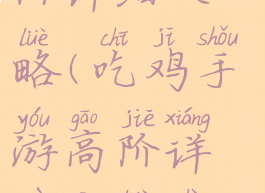 lüè chī jī shǒu
略(吃鸡手
yóu gāo jiē xiáng
游高阶详